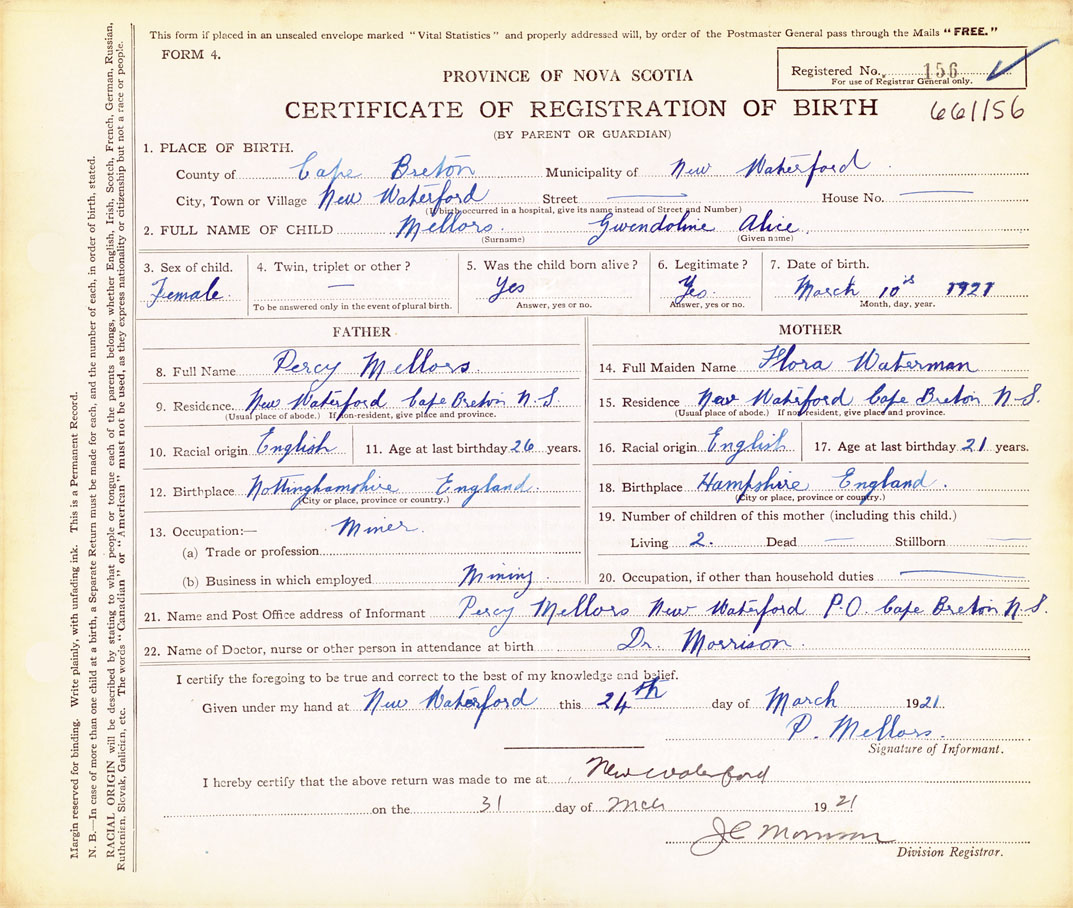 This form if placed in an unsealed envelope marked "Vital Statistics" and properly addressed will, by order of the Postmaster General pass through the Mails "FREE."
FORM 4.
Registered No. 156
For use of Registrar General only.
PROVINCE OF NOVA SCOTIA
CERTIFICATE OF REGISTRATION OF BIRTH
661156
(BY PARENT OR GUARDIAN)
1. PLACE OF BIRTH.
County of Cape Breton Municipality of New Waterford
City, Town or Village New Waterford Street — House No. —
(If birth occurred in a hospital, give its name instead of Street and Number)
2. FULL NAME OF CHILD Mellors Gwendoline Alice
(Surname) (Given name)
3. Sex of child. 4. Twin, triplet or other? 5. Was the child born alive? 6. Legitimate? 7. Date of birth.
Female. — Yes Yes. March 10th 1921
To be answered only in the event of plural birth. Answer, yes or no. Answer, yes or no. Month, day, year.
FATHER
8. Full Name Percy Mellors.
9. Residence. New Waterford Cape Breton N.S.
(Usual place of abode.) If non-resident, give place and province.
10. Racial origin English 11. Age at last birthday 26 years.
12. Birthplace Nottinghamshire England.
(City or place, province or country.)
13. Occupation:— Miner.
(a) Trade or profession
(b) Business in which employed Mining
MOTHER
14. Full Maiden Name Flora Waterman
15. Residence New Waterford Cape Breton N.S.
(Usual place of abode.) If non-resident, give place and province.
16. Racial origin English 17. Age at last birthday 21 years.
18. Birthplace Hampshire England.
(City or place, province or country.)
19. Number of children of this mother (including this child.)
Living 2. Dead — Stillborn —
20. Occupation, if other than household duties —
21. Name and Post Office address of Informant Percy Mellors New Waterford P.O. Cape Breton N.S.
22. Name of Doctor, nurse or other person in attendance at birth Dr. Morrison.
I certify the foregoing to be true and correct to the best of my knowledge and belief.
Given under my hand at New Waterford this 24th day of March 1921.
P. Mellors.
Signature of Informant.
I hereby certify that the above return was made to me at New Waterford
on the 31 day of Mch 1921
J C Morrison
Division Registrar.
Margin reserved for binding. Write plainly, with unfading ink. This is a Permanent Record.
N. B.—In case of more than one child at a birth, a Separate Return must be made for each, and the number of each, in order of birth, stated.
RACIAL ORIGIN will be described by stating to what people or tongue each of the parents belongs, whether English, Irish, Scotch, French, German, Russian,
Ruthenian, Slovak, Galician, etc. The words "Canadian" or "American" must not be used, as they express nationality or citizenship but not a race or people.